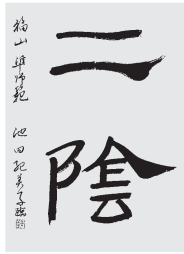 二陰
福山 準師範 池田紀美子臨